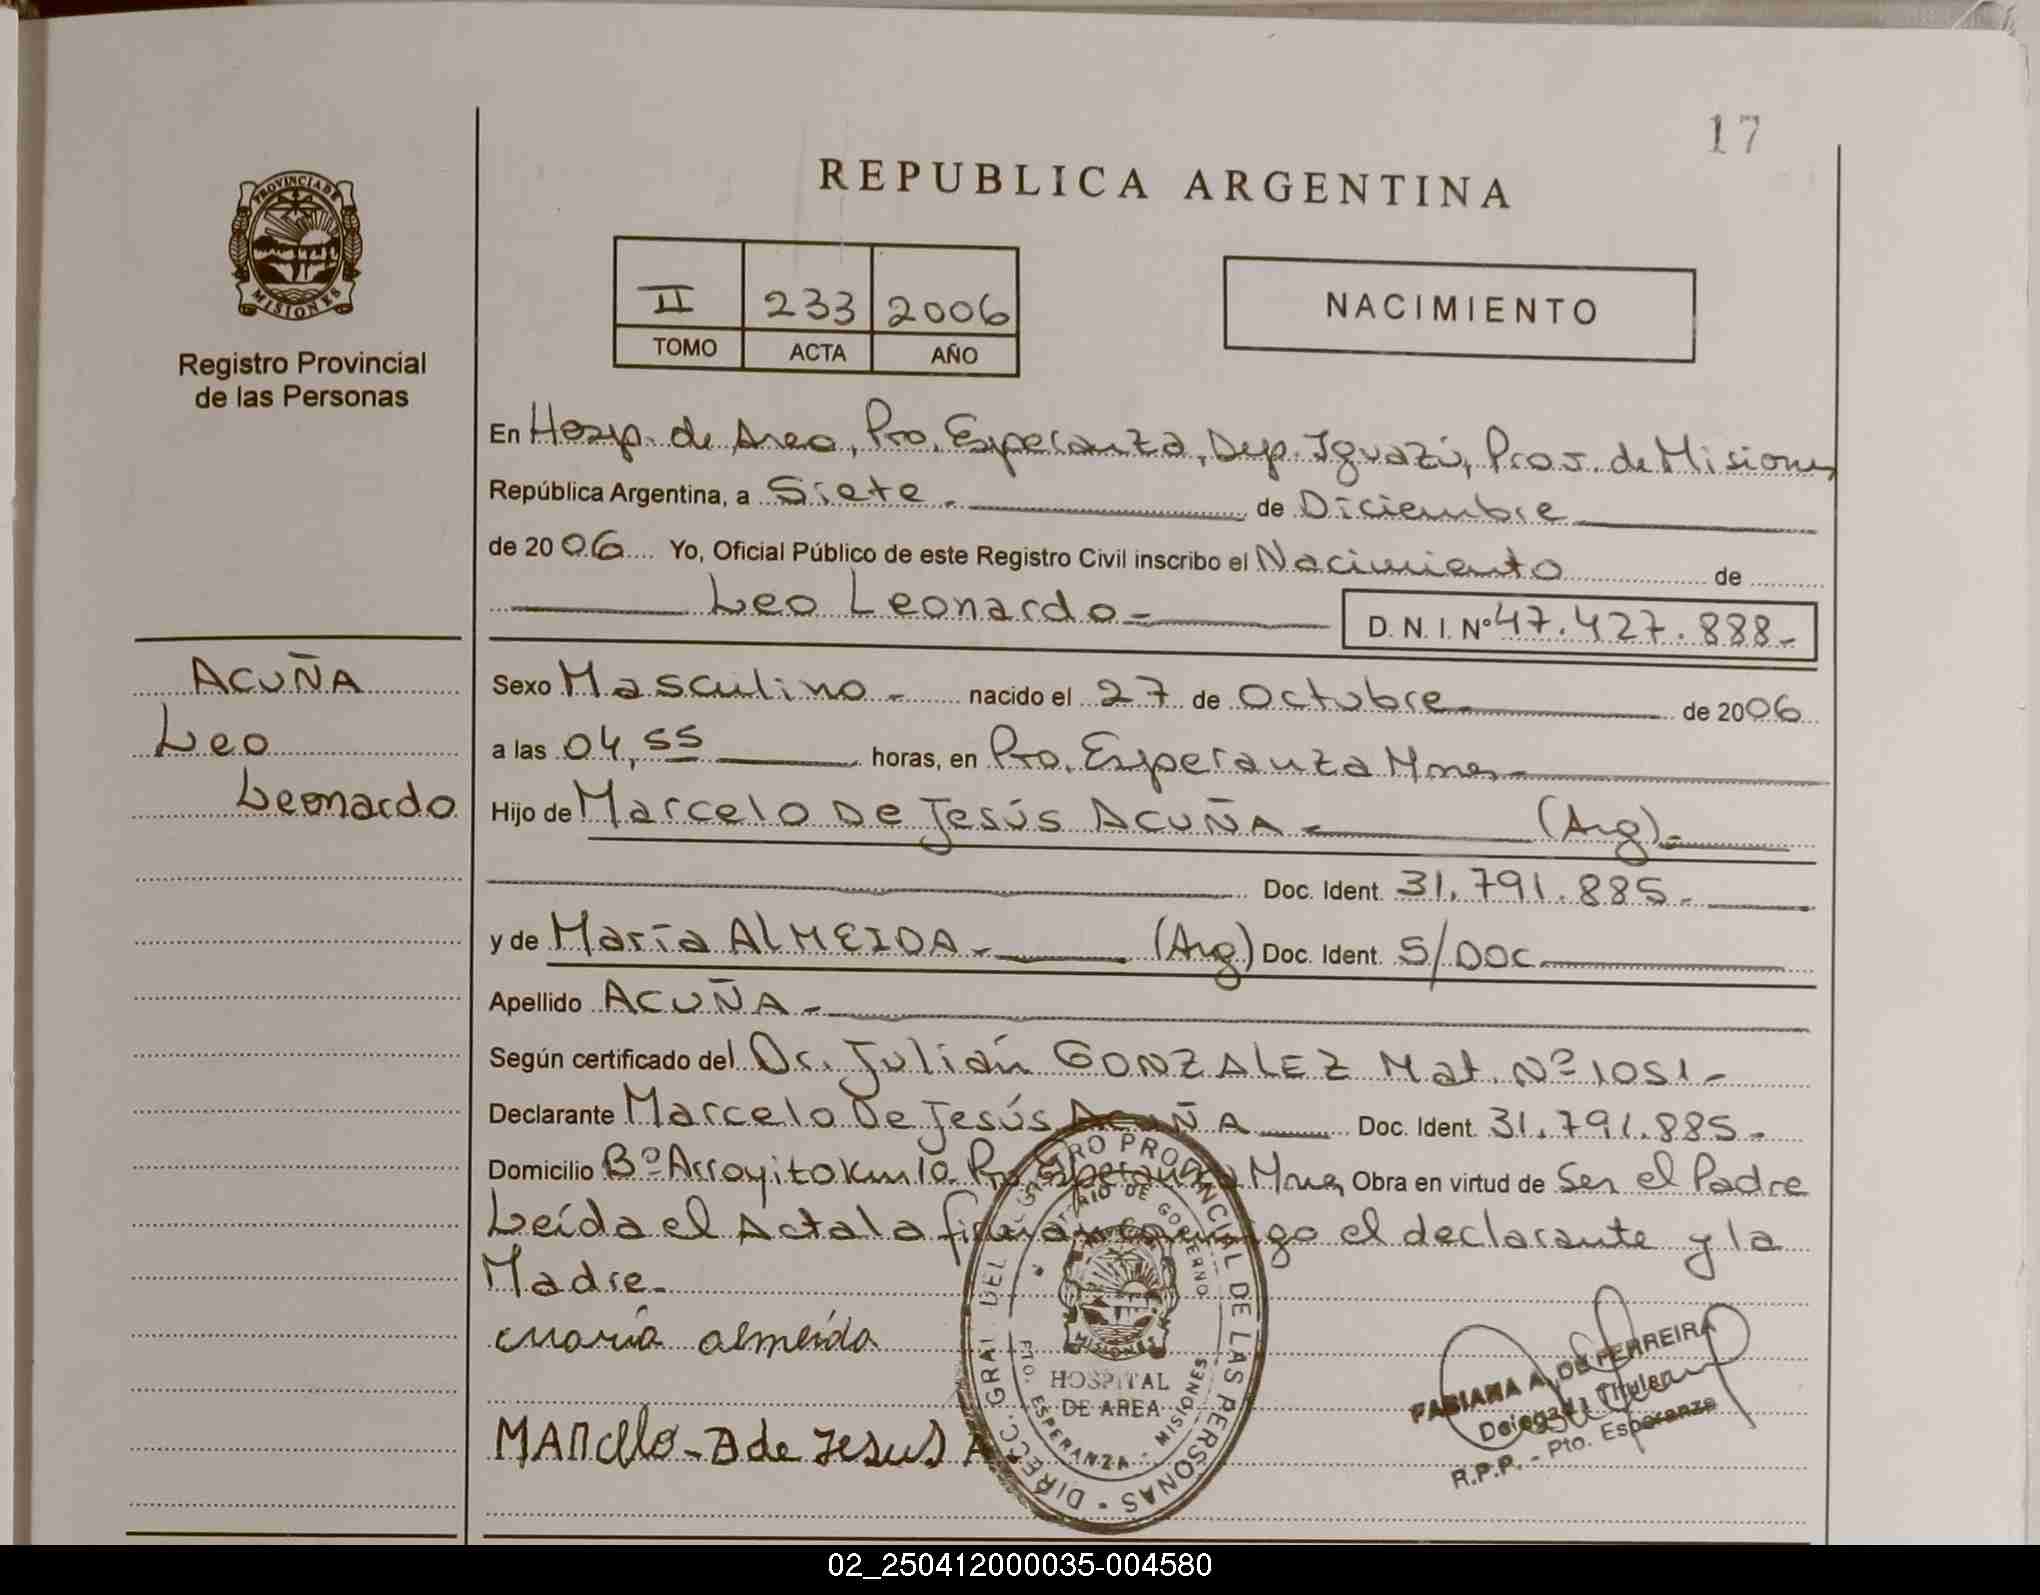 17
REPUBLICA ARGENTINA
PROVINCIA DE
MISIONES
Registro Provincial
de las Personas
II 233 2006
TOMO ACTA AÑO
NACIMIENTO
En Hosp. de Area, Pto. Esperanza, Dep. Iguazú, Prov. de Misiones
República Argentina, a Siete.- de Diciembre
de 2006 Yo, Oficial Público de este Registro Civil inscribo el Nacimiento de
Leo Leonardo.-
D. N. I. Nº 47.427.888.-
ACUÑA
Leo
Leonardo
Sexo Masculino.- nacido el 27 de Octubre de 2006
a las 04,55 horas, en Pto. Esperanza Mnes.-
Hijo de Marcelo De Jesús ACUÑA.- (Arg).-
Doc. Ident. 31.791.885.-
y de María ALMEIDA.- (Arg) Doc. Ident. S/DOC.
Apellido ACUÑA.-
Según certificado del Dr. Julián GONZALEZ Mat. Nº 1051.-
Declarante Marcelo De Jesús ACUÑA Doc. Ident. 31.791.885.-
Domicilio Bº Arroyito km 10 Pto Esperanza Mnes, Obra en virtud de Ser el Padre
Leída el Acta la firman conmigo el declarante y la
Madre.-
maría almeida
MARcelo - D de Jesus A.
DIRECC. GRAL. DEL REGISTRO PROVINCIAL DE LAS PERSONAS
MINISTERIO DE GOBIERNO
MISIONES
HOSPITAL
DE AREA
PTO. ESPERANZA - MISIONES
FABIANA A. DE FERREIRA
Delegada Titular
R.P.P. - Pto. Esperanza
02_250412000035-004580